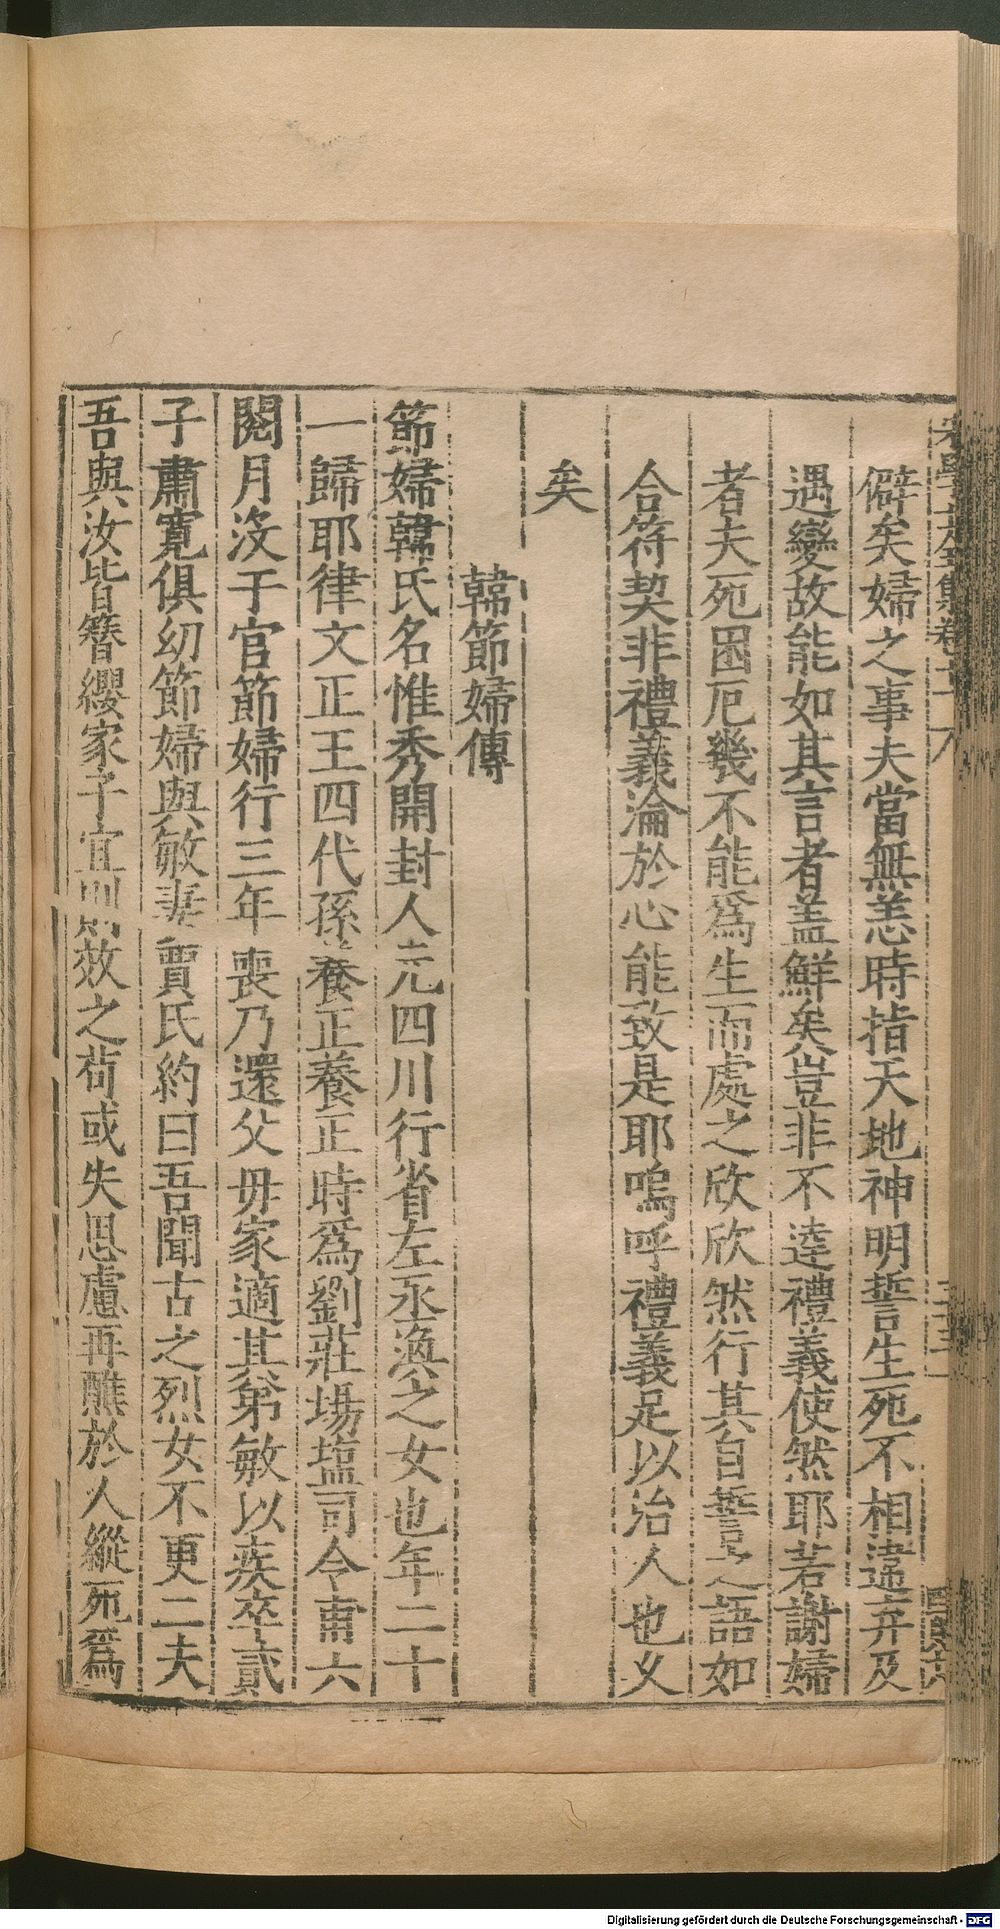 宋學士全集卷十八
僻矣婦之事夫當無恙時指天地神明誓生死不相違弃及
遇變故能如其言者盖鮮矣豈非不逹禮義使然耶若謝婦
者夫死困厄幾不能爲生而處之欣欣然行其自誓之語如
合符契非禮義淪於心能致是耶嗚呼禮義足以治人也乆
矣
韓節婦傳
節婦韓氏名惟秀開封人元四川行省左丞渙之女也年二十
一歸耶律文正王四代孫養正養正時爲劉莊場塩司令甫六
閱月沒于官節婦行三年喪乃還父毋家適其弟敏以疾卒貳
子肅寛俱幼節婦與敏妻賈氏約曰吾聞古之烈女不更二夫
吾與汝皆簪纓家子宜則效之茍或失思慮再醮於人縱死爲
Digitalisierung gefördert durch die Deutsche Forschungsgemeinschaft - DFG